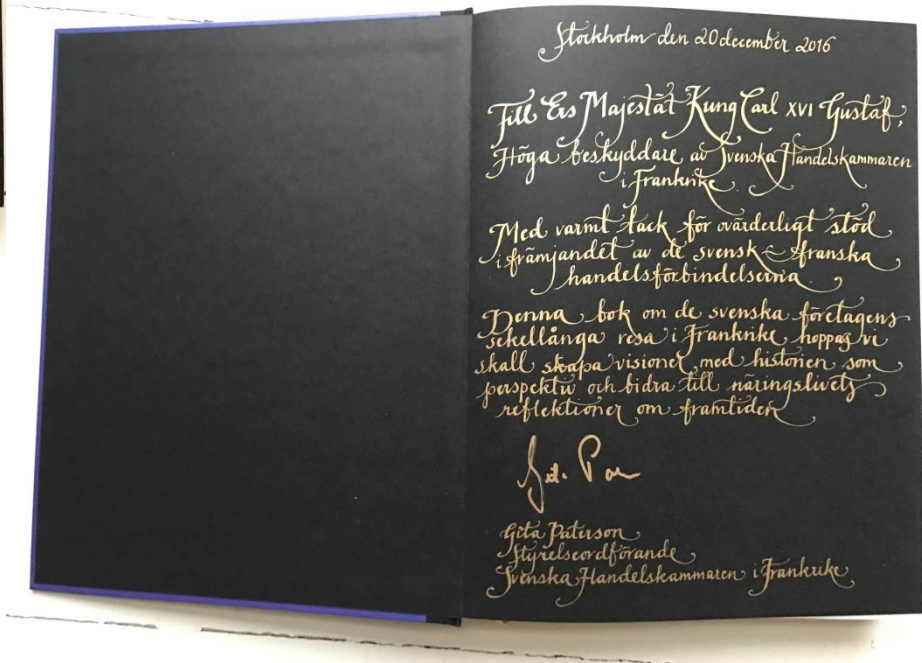 Stockholm den 20 december 2016
Till Ers Majestät Kung Carl XVI Gustaf,
Höga beskyddare av Svenska Handelskammaren
i Frankrike.
Med varmt tack för ovärderligt stöd
i främjandet av de svensk-franska
handelsförbindelserna
Denna bok om de svenska företagens
sekellånga resa i Frankrike hoppas vi
skall skapa visioner med historien som
perspektiv och bidra till näringslivets
reflektioner om framtiden
Gita Paterson
Styrelseordförande
Svenska Handelskammaren i Frankrike